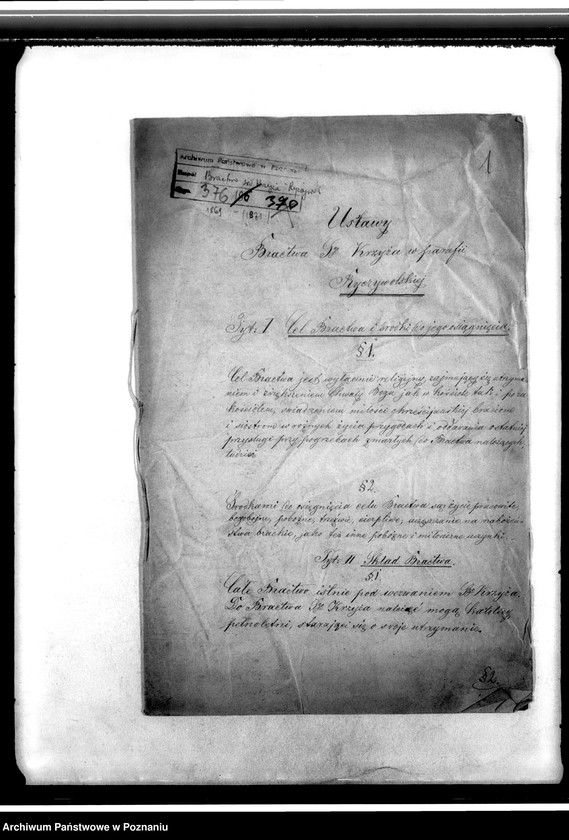 1
Archiwum Państwowe w Poznaniu
Bractwo św. Krzyża
376 186 390
1861 - 1871
Ustawy
Bractwa Śº Krzyża w parafii
Ryczywolskiej.
Tyt: I Cel Bractwa i środki do jego osiągnięcia.
§ 1.
Cel Bractwa jest wyłącznie religijny, zajmujący się utrzyma-
niem i zwiększeniem Chwały Boga, jak w kościele, tak i poza
kościołem, świadczeniem miłości chrześcijańskiej braciom
i siostrom w różnych życia przygodach i oddawania ostatniej
przysługi przy pogrzebach zmarłych do Bractwa należących
ludzi.
§ 2.
Środkami do osiągnięcia celu Bractwa są: życie pracowite,
bogobojne, pobożne, trzeźwe, cierpliwe, uczęszczanie na nabożeń-
stwa brackie, jako też inne pobożne i miłosierne uczynki.
Tyt: II Skład Bractwa.
§ 1
Całe Bractwo istnie pod wezwaniem Śº Krzyża.
Do Bractwa Śº Krzyża należeć mogą Katolicy
pełnoletni, starający się o swoje utrzymanie.
§ 2.
Archiwum Państwowe w Poznaniu